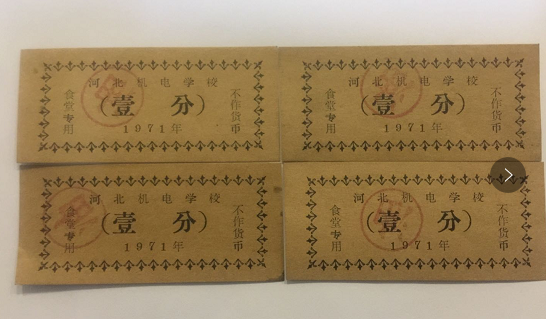 河北机电学校
食堂专用
（壹 分）
不作货币
1971年
河北机电学校
食堂专用
（壹 分）
不作货币
1971年
河北机电学校
食堂专用
（壹 分）
不作货币
1971年
河北机电学校
食堂专用
（壹 分）
不作货币
1971年